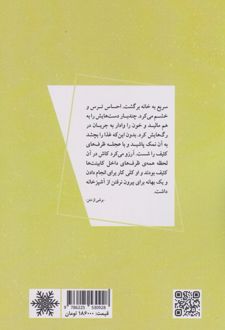 سریع به خانه برگشت. احساس ترس و
خشم می‌کرد. چندبار دست‌هایش را به
هم مالید و خون را وادار به جریان در
رگ‌هایش کرد. بدون این‌که غذا را بچشد
به آن نمک پاشید و با عجله ظرف‌های
کثیف را شست. آرزو می‌کرد کاش در آن
لحظه همه‌ی ظرف‌های داخل کابینت‌ها
کثیف بودند و او کلی کار برای انجام دادن
و یک بهانه برای بیرون نرفتن از آشپزخانه
داشت.
- برشی از متن
قیمت: ۱۸۶۰۰۰ تومان
9 786225 530928